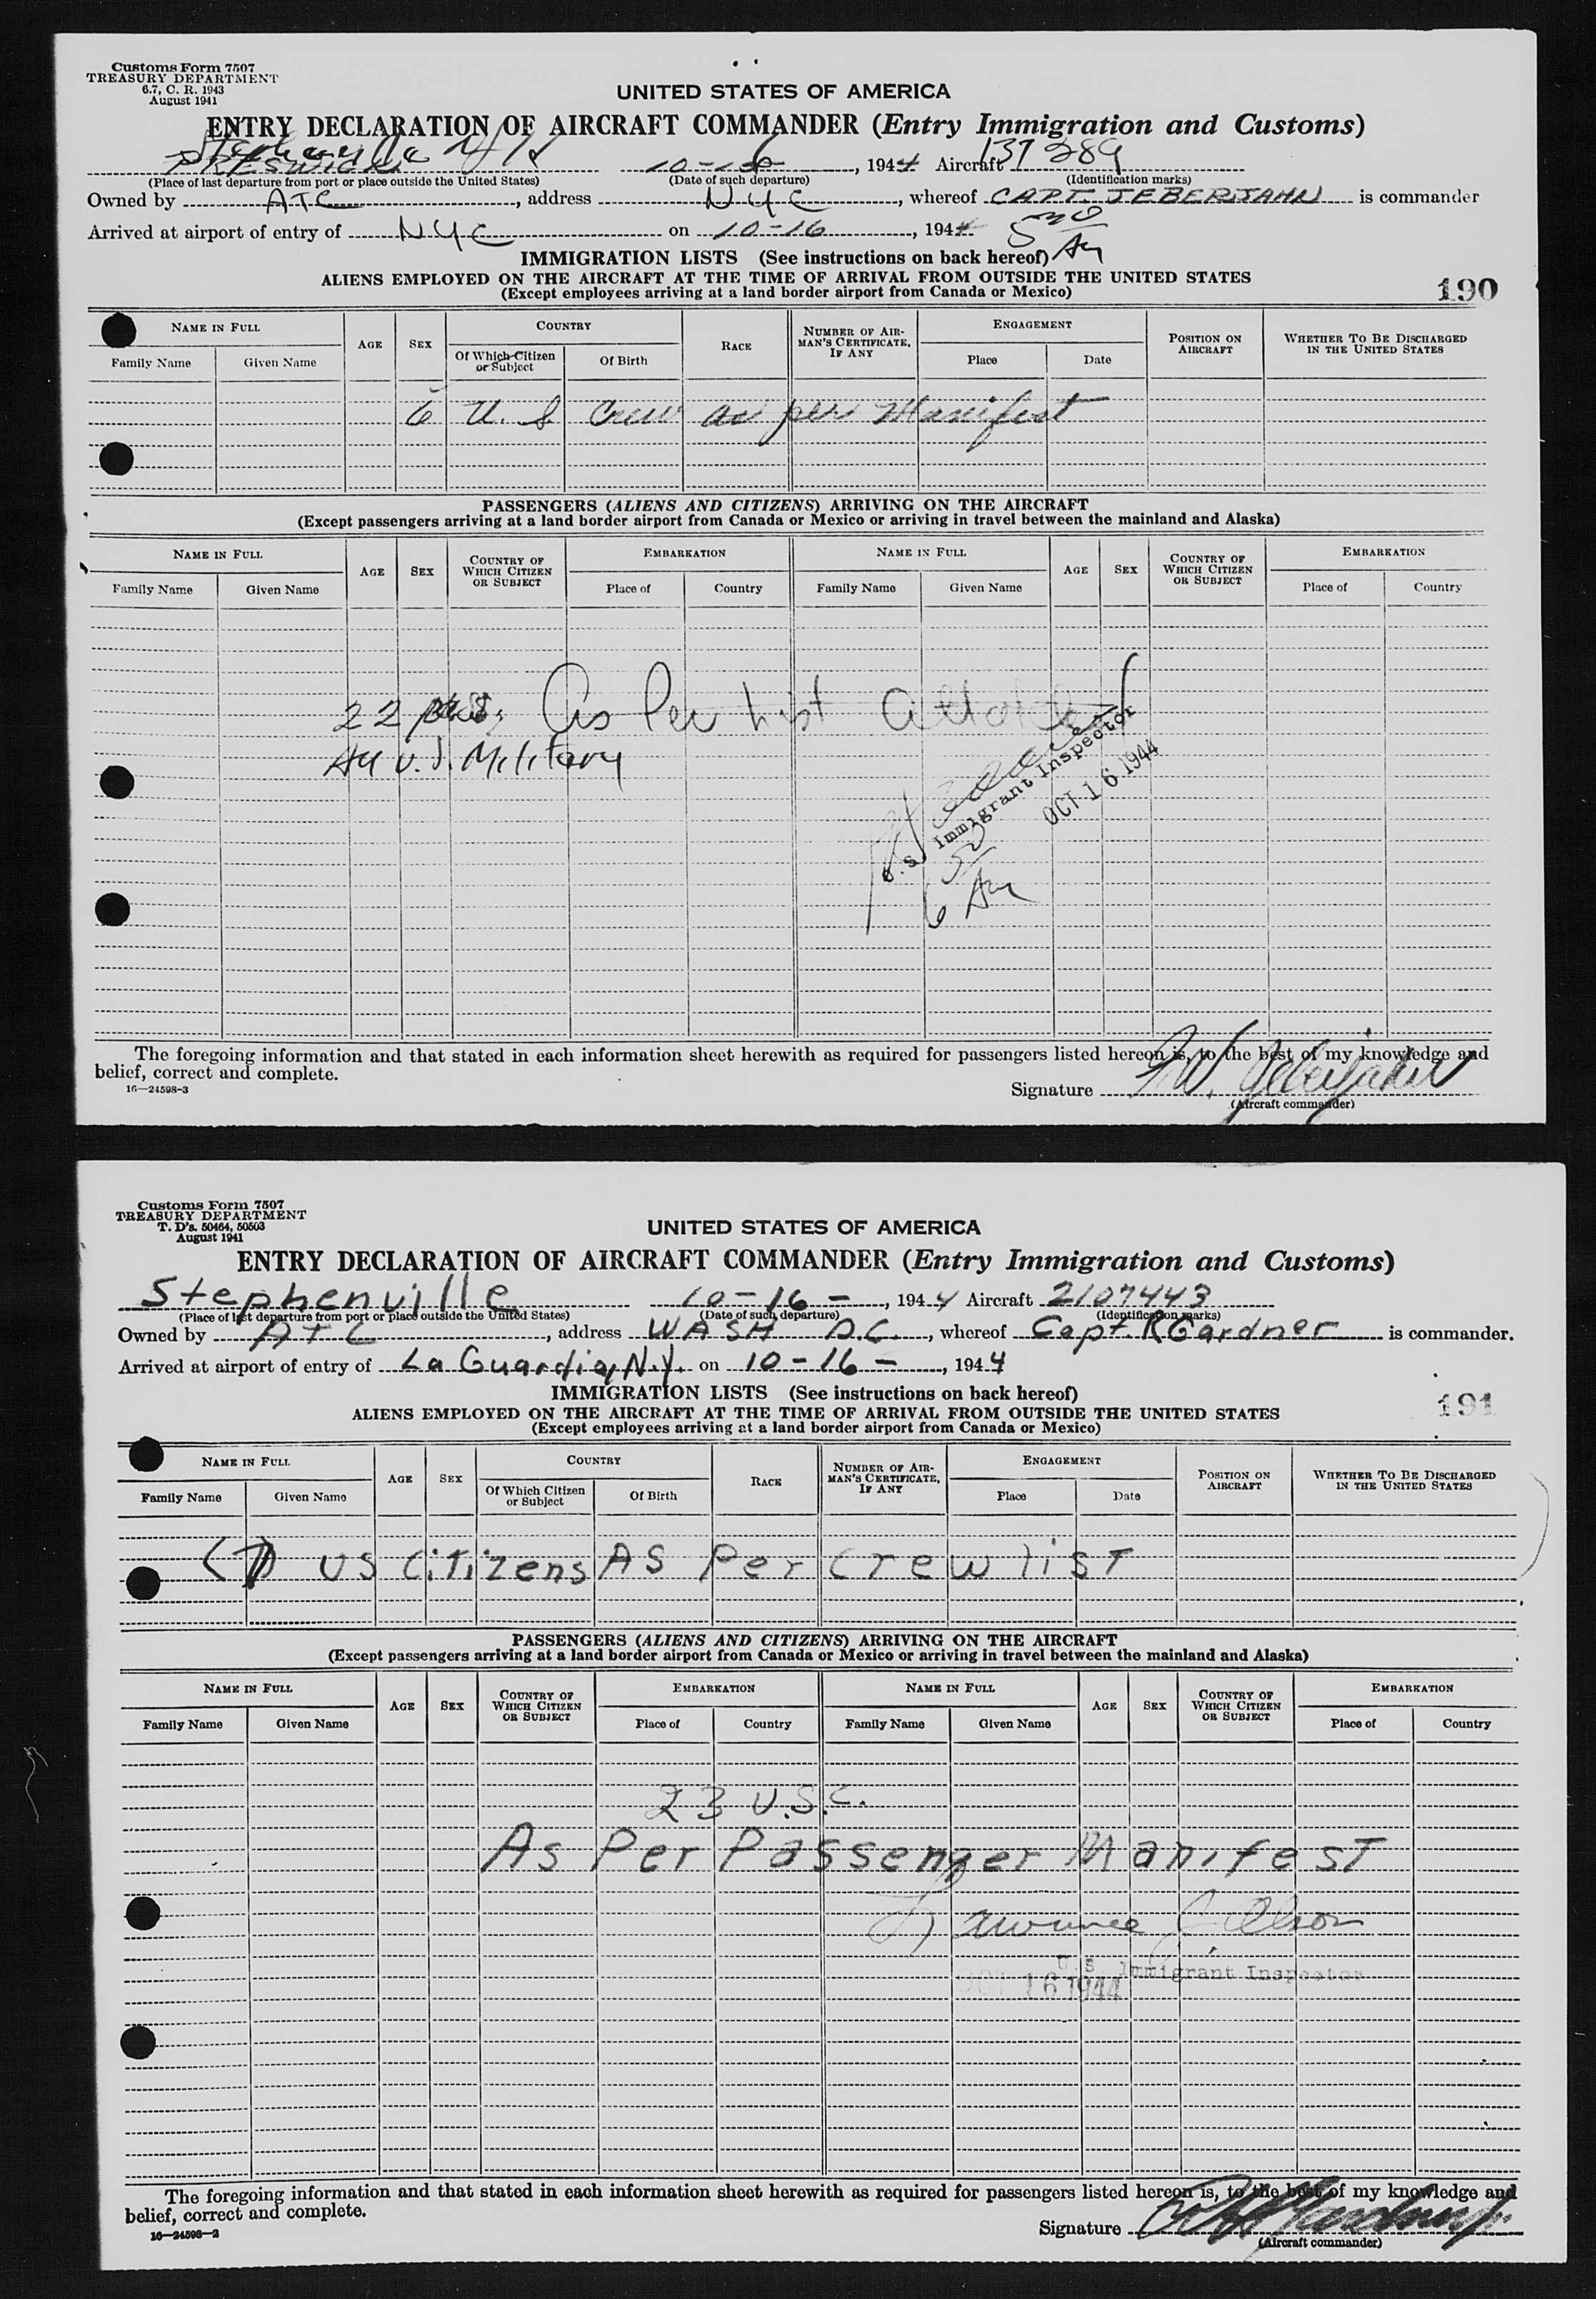 Customs Form 7507
TREASURY DEPARTMENT
6.7, C. R. 1943
August 1941
UNITED STATES OF AMERICA
ENTRY DECLARATION OF AIRCRAFT COMMANDER (Entry Immigration and Customs)
PRESWICK 10-16, 1944 Aircraft 137289
(Place of last departure from port or place outside the United States) (Date of such departure) (Identification marks)
Owned by ATC, address NYC, whereof CAPT. JEBERJAHN is commander
Arrived at airport of entry of NYC on 10-16, 1944
530
AM
IMMIGRATION LISTS (See instructions on back hereof)
ALIENS EMPLOYED ON THE AIRCRAFT AT THE TIME OF ARRIVAL FROM OUTSIDE THE UNITED STATES
(Except employees arriving at a land border airport from Canada or Mexico)
190
NAME IN FULL AGE SEX COUNTRY RACE NUMBER OF AIRMAN'S CERTIFICATE, IF ANY ENGAGEMENT POSITION ON AIRCRAFT WHETHER TO BE DISCHARGED IN THE UNITED STATES
Family Name Given Name Of Which Citizen or Subject Of Birth Place Date
6 U. S. Crew as per Manifest
PASSENGERS (ALIENS AND CITIZENS) ARRIVING ON THE AIRCRAFT
(Except passengers arriving at a land border airport from Canada or Mexico or arriving in travel between the mainland and Alaska)
NAME IN FULL AGE SEX COUNTRY OF WHICH CITIZEN OR SUBJECT EMBARKATION NAME IN FULL AGE SEX COUNTRY OF WHICH CITIZEN OR SUBJECT EMBARKATION
Family Name Given Name Place of Country Family Name Given Name Place of Country
22 As Per List Attached
All U.S. Military
U. S. Immigrant Inspector
OCT 16 1944
6 50
AM
The foregoing information and that stated in each information sheet herewith as required for passengers listed hereon is, to the best of my knowledge and
belief, correct and complete.
16—24598-3
Signature F.W. Jeberjahn
(Aircraft commander)
Customs Form 7507
TREASURY DEPARTMENT
T. D's. 50464, 50503
August 1941
UNITED STATES OF AMERICA
ENTRY DECLARATION OF AIRCRAFT COMMANDER (Entry Immigration and Customs)
Stephenville 10-16-, 1944 Aircraft 2107443
(Place of last departure from port or place outside the United States) (Date of such departure) (Identification marks)
Owned by ATC, address WASH D.C., whereof Capt. R Gardner is commander.
Arrived at airport of entry of La Guardia, N.Y. on 10-16-, 1944
IMMIGRATION LISTS (See instructions on back hereof)
ALIENS EMPLOYED ON THE AIRCRAFT AT THE TIME OF ARRIVAL FROM OUTSIDE THE UNITED STATES
(Except employees arriving at a land border airport from Canada or Mexico)
191
NAME IN FULL AGE SEX COUNTRY RACE NUMBER OF AIRMAN'S CERTIFICATE, IF ANY ENGAGEMENT POSITION ON AIRCRAFT WHETHER TO BE DISCHARGED IN THE UNITED STATES
Family Name Given Name Of Which Citizen or Subject Of Birth Place Date
(7) US Citizens AS Per Crew list
PASSENGERS (ALIENS AND CITIZENS) ARRIVING ON THE AIRCRAFT
(Except passengers arriving at a land border airport from Canada or Mexico or arriving in travel between the mainland and Alaska)
NAME IN FULL AGE SEX COUNTRY OF WHICH CITIZEN OR SUBJECT EMBARKATION NAME IN FULL AGE SEX COUNTRY OF WHICH CITIZEN OR SUBJECT EMBARKATION
Family Name Given Name Place of Country Family Name Given Name Place of Country
23 U.S.C.
As Per Passenger Manifest
Lawrence J. Olson
U. S. Immigrant Inspector
OCT 16 1944
The foregoing information and that stated in each information sheet herewith as required for passengers listed hereon is, to the best of my knowledge and
belief, correct and complete.
16—24598-2
Signature
(Aircraft commander)